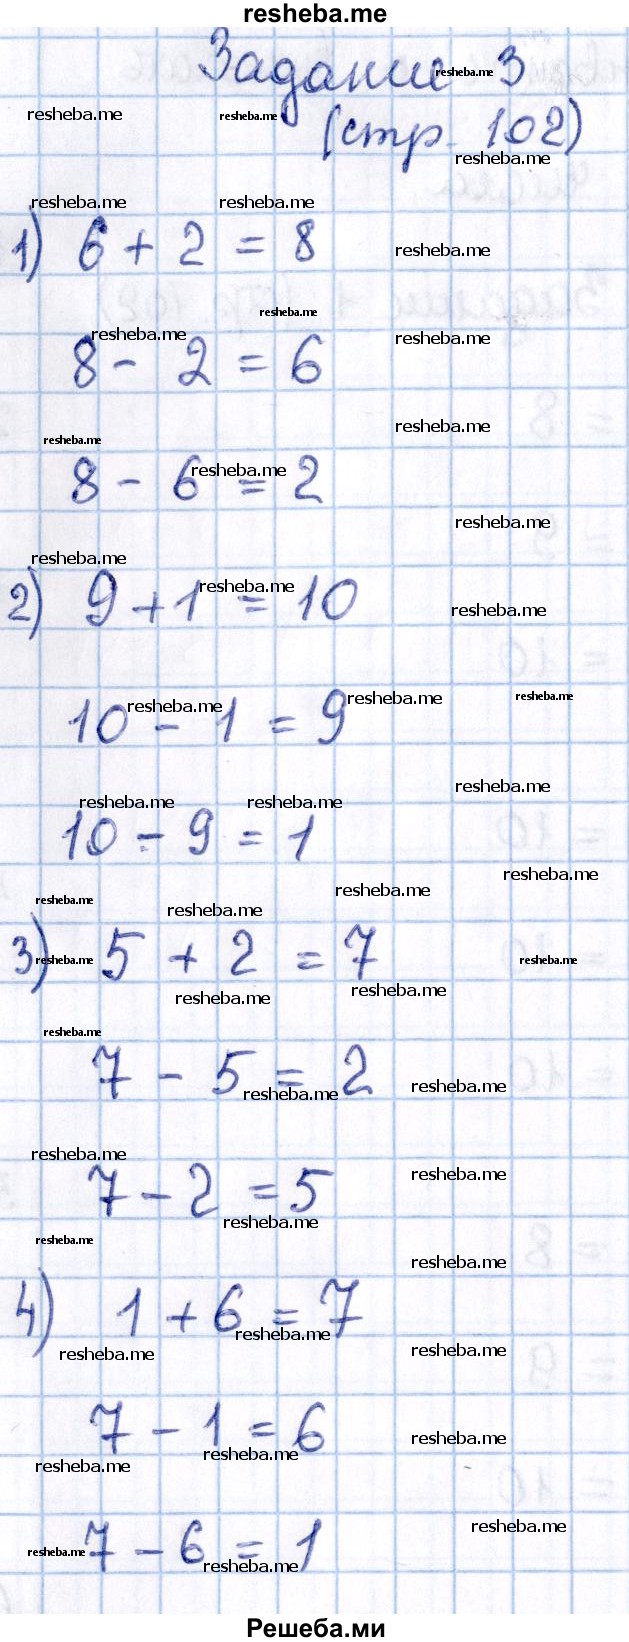 resheba.me
Задание 3
(стр. 102)
1) 6 + 2 = 8
8 - 2 = 6
8 - 6 = 2
2) 9 + 1 = 10
10 - 1 = 9
10 - 9 = 1
3) 5 + 2 = 7
7 - 5 = 2
7 - 2 = 5
4) 1 + 6 = 7
7 - 1 = 6
7 - 6 = 1
Решеба.ми